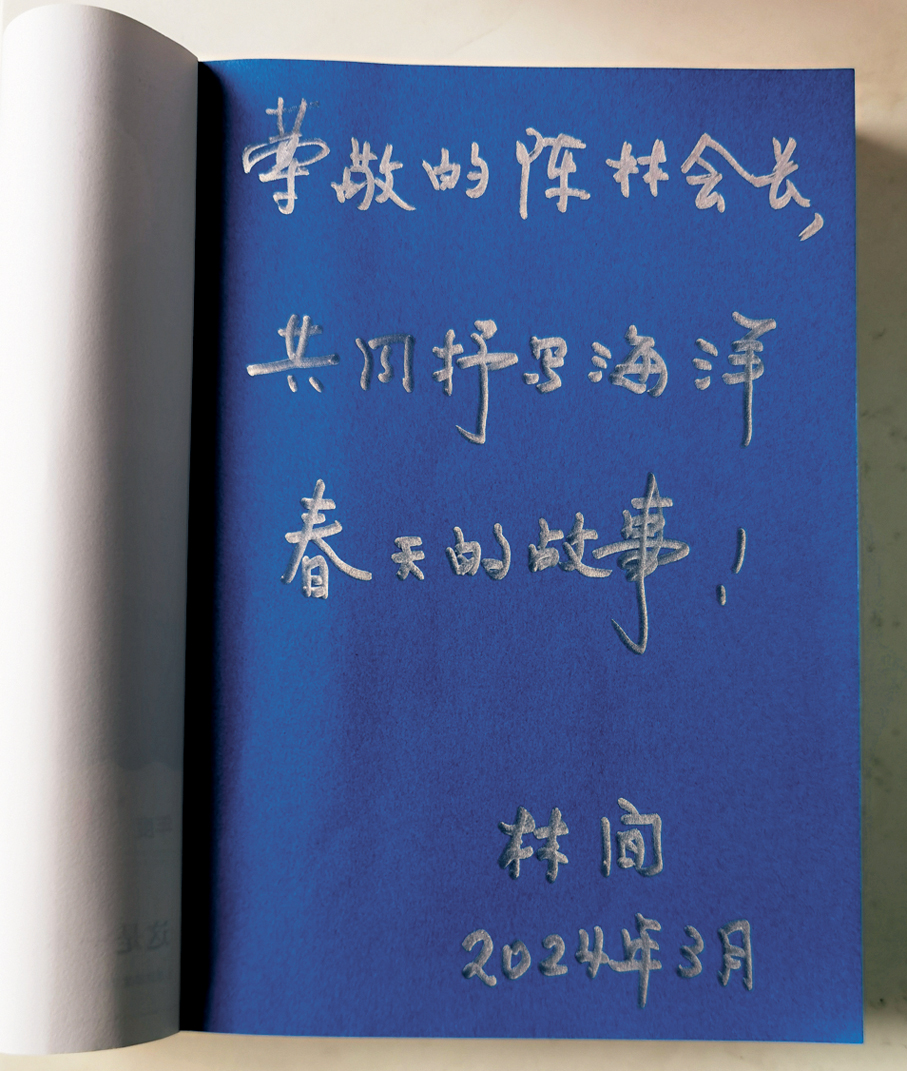 尊敬的陈林会长,
共同抒写海洋
春天的故事!
林间
2024年3月
这是